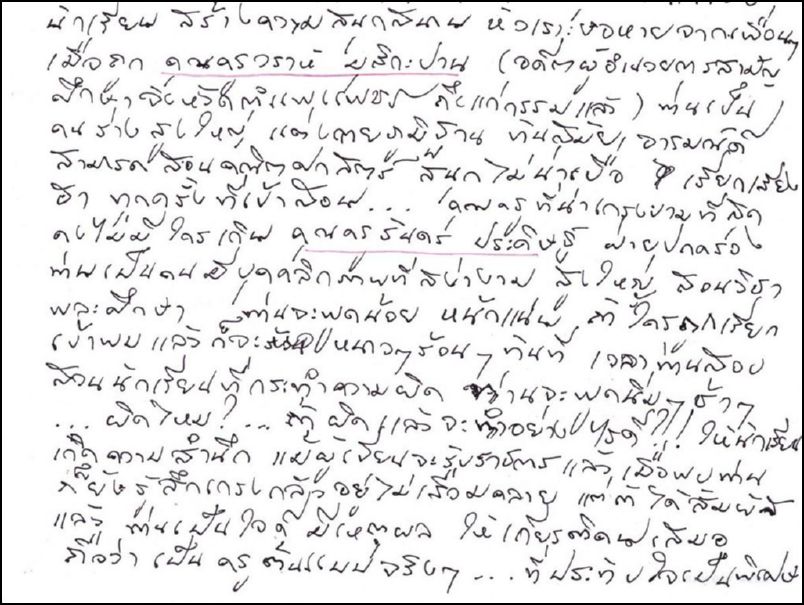 นักเรียน สร้างความสนุกสนาน หัวเราะงอหายจากเพื่อนๆ
เมื่อถูก คุณครูวราห์ (อดีตผู้อำนวยการสามัญ
ศึกษาจังหวัดกำแพงเพชร ถึงแก่กรรมแล้ว) ท่านเป็น
คนร่างสูงใหญ่ แต่งกายภูมิฐาน ทันสมัย อารมณ์ดี
สามารถสอนคณิตศาสตร์ สนุกไม่น่าเบื่อ เรียกเสียง
ฮา ทุกครั้งที่เข้าสอน... คุณครูที่น่าเกรงขามที่สุด
คงไม่มีใครเกิน คุณครู ประดิษฐ์ ฝ่ายปกครอง
ท่านเป็นคนมีบุคคลิกภาพที่สง่างาม สูงใหญ่ สอนวิชา
พละศึกษา ท่านจะพูดน้อย หนักแน่น ถ้าใครถูกเรียก
เข้าพบแล้วก็จะ หนาวๆร้อนๆ ทันที เวลาท่านสอบ
สวนนักเรียนที่กระทำความผิด ท่านจะพูดนิ่มๆ ช้าๆ
...ผิดไหม?... ผิดแล้วจะทำอย่างไร ดี..?!! ให้นักเรียน
เกิดความสำนึก แม้ผู้เขียนจะรับราชการแล้ว เมื่อพบท่าน
ก็ยังรู้สึกเกรงกลัวอยู่ไม่เสื่อมคลาย แต่ถ้าได้สัมผัส
แล้ว ท่านเป็นใจดี มีเหตุผล ให้เกียรติคนเสมอ
ถือว่าเป็นครูต้นแบบจริงๆ ... ที่ประทับใจเป็นพิเศษ